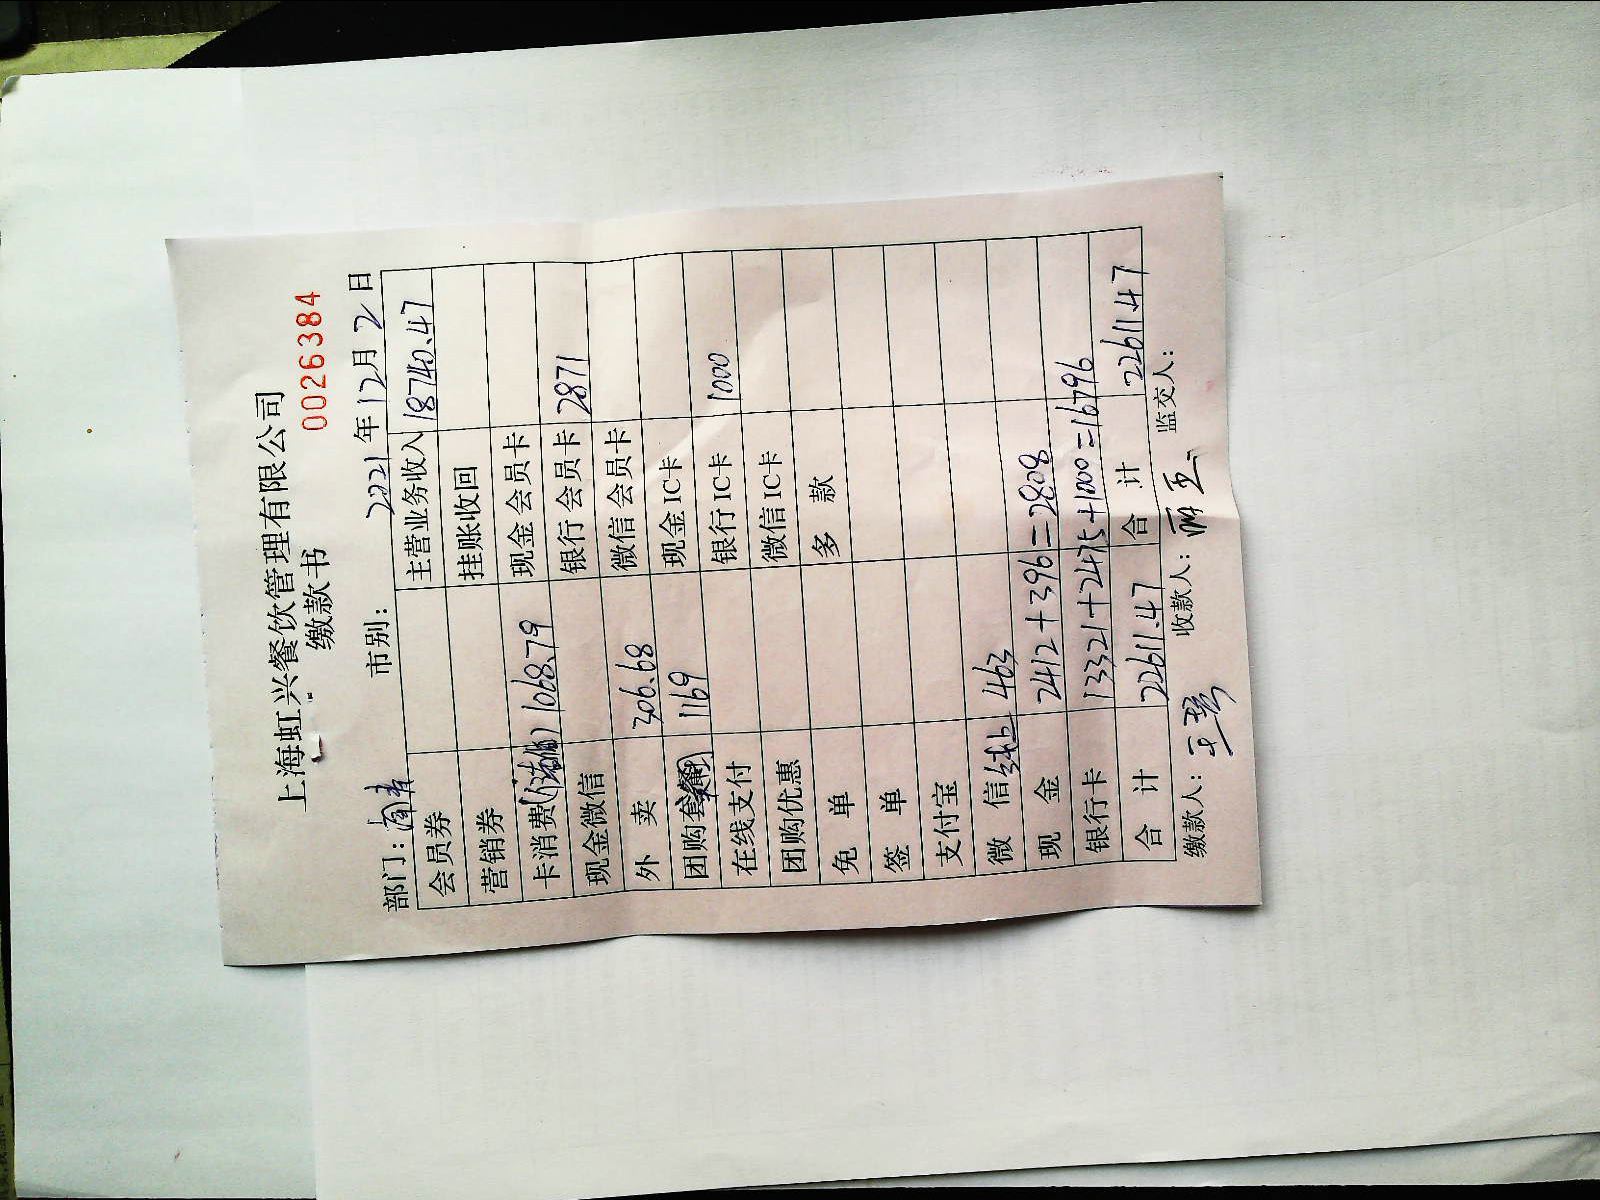 上海虹兴餐饮管理有限公司
缴款书
0026384
部门: 市别: 2021年12月2日
会员券 主营业务收入 18740.47
营销券 挂账收回
卡消费 1068.79 现金会员卡
现金微信 银行会员卡 2871
外卖 306.68 微信会员卡
团购套餐 1169 现金IC卡
在线支付 银行IC卡 1000
团购优惠 微信IC卡
免单 多款
签单
支付宝
微信(线上) 463
现金 2412+396=2808
银行卡 13321+2475+1000=16796
合计 22611.47 合计 22611.47
缴款人: 王 收款人: 监交人: